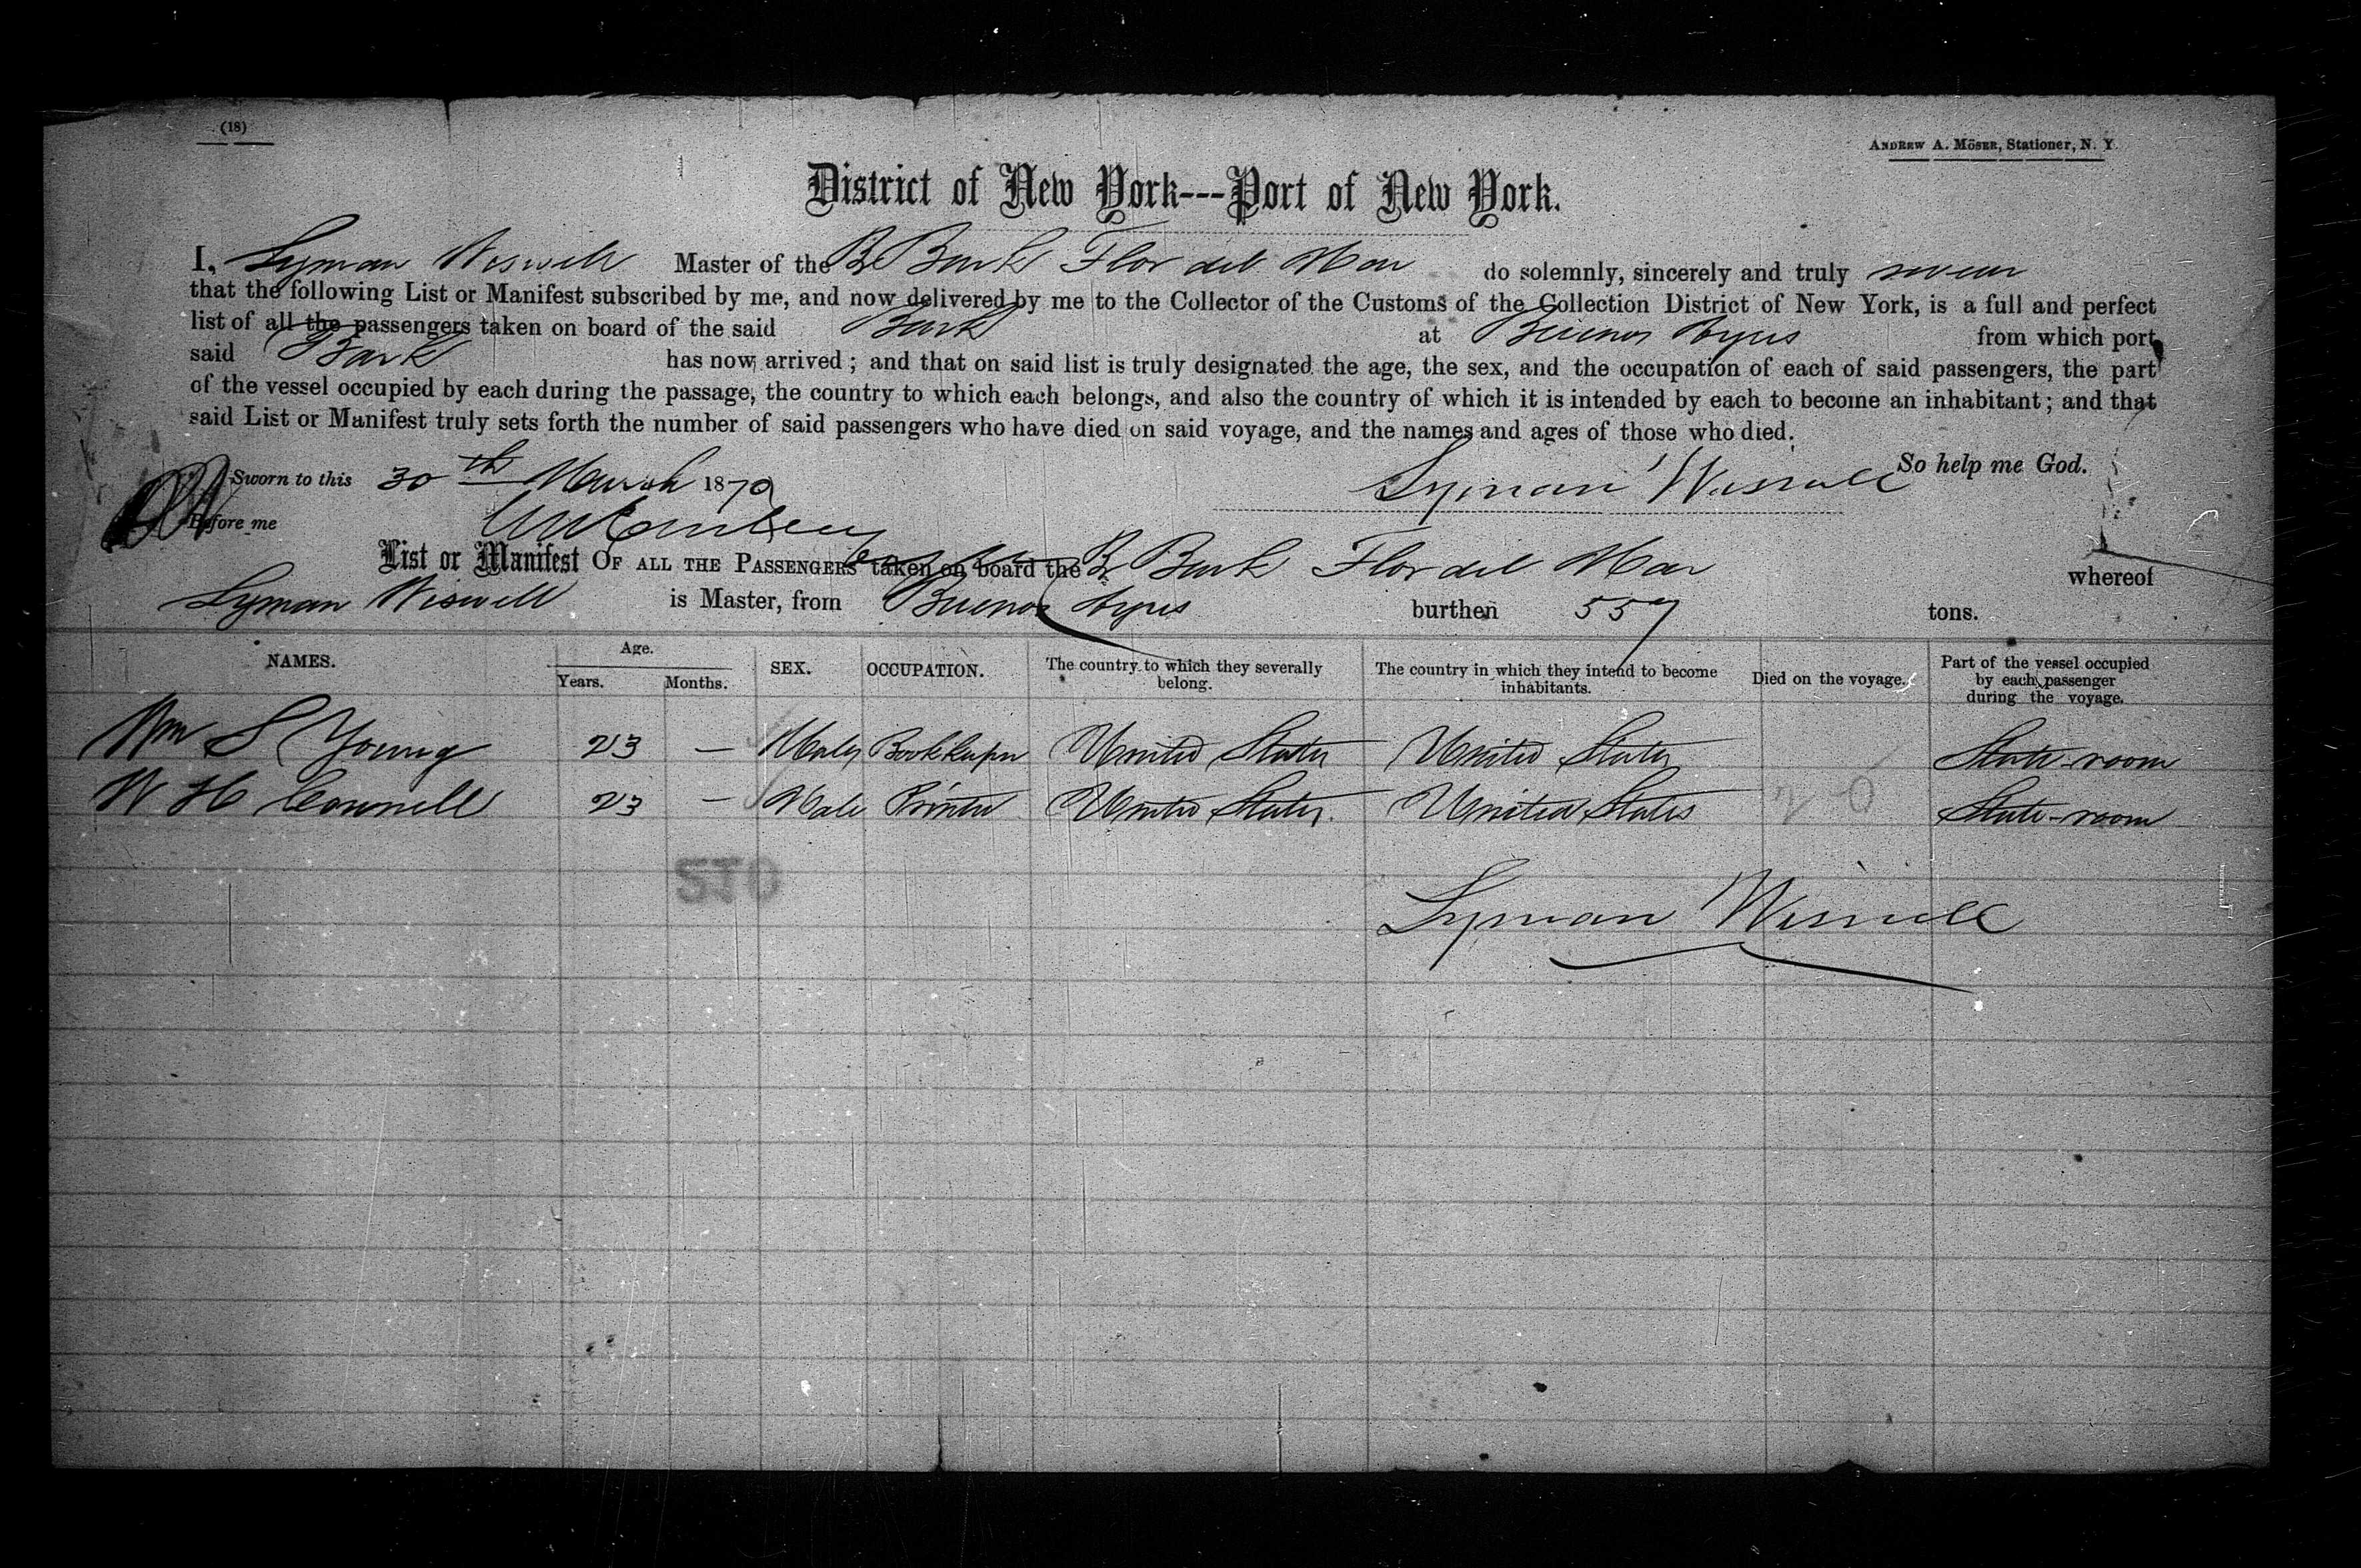 (18)
ANDREW A. MÖSER, Stationer, N. Y.
District of New York---Port of New York.
I, Lyman Wiswell Master of the Br Bark Flor del Mar do solemnly, sincerely and truly swear
that the following List or Manifest subscribed by me, and now delivered by me to the Collector of the Customs of the Collection District of New York, is a full and perfect
list of all the passengers taken on board of the said Bark at Buenos Ayres from which port
said Bark has now arrived; and that on said list is truly designated the age, the sex, and the occupation of each of said passengers, the part
of the vessel occupied by each during the passage, the country to which each belongs, and also the country of which it is intended by each to become an inhabitant; and that
said List or Manifest truly sets forth the number of said passengers who have died on said voyage, and the names and ages of those who died.
So help me God.
Sworn to this 30th March 1879 Lyman Wiswell
Before me
List or Manifest OF ALL THE PASSENGERS taken on board the Br Bark Flor del Mar whereof
Lyman Wiswell is Master, from Buenos Ayres burthen 557 tons.
NAMES. Age. Years. Months. SEX. OCCUPATION. The country to which they severally belong. The country in which they intend to become inhabitants. Died on the voyage. Part of the vessel occupied by each passenger during the voyage.
Wm S Young 23 — Male Bookkeeper United States United States State-room
W H Connell 23 — Male Printer United States United States State-room
20
STO
Lyman Wiswell